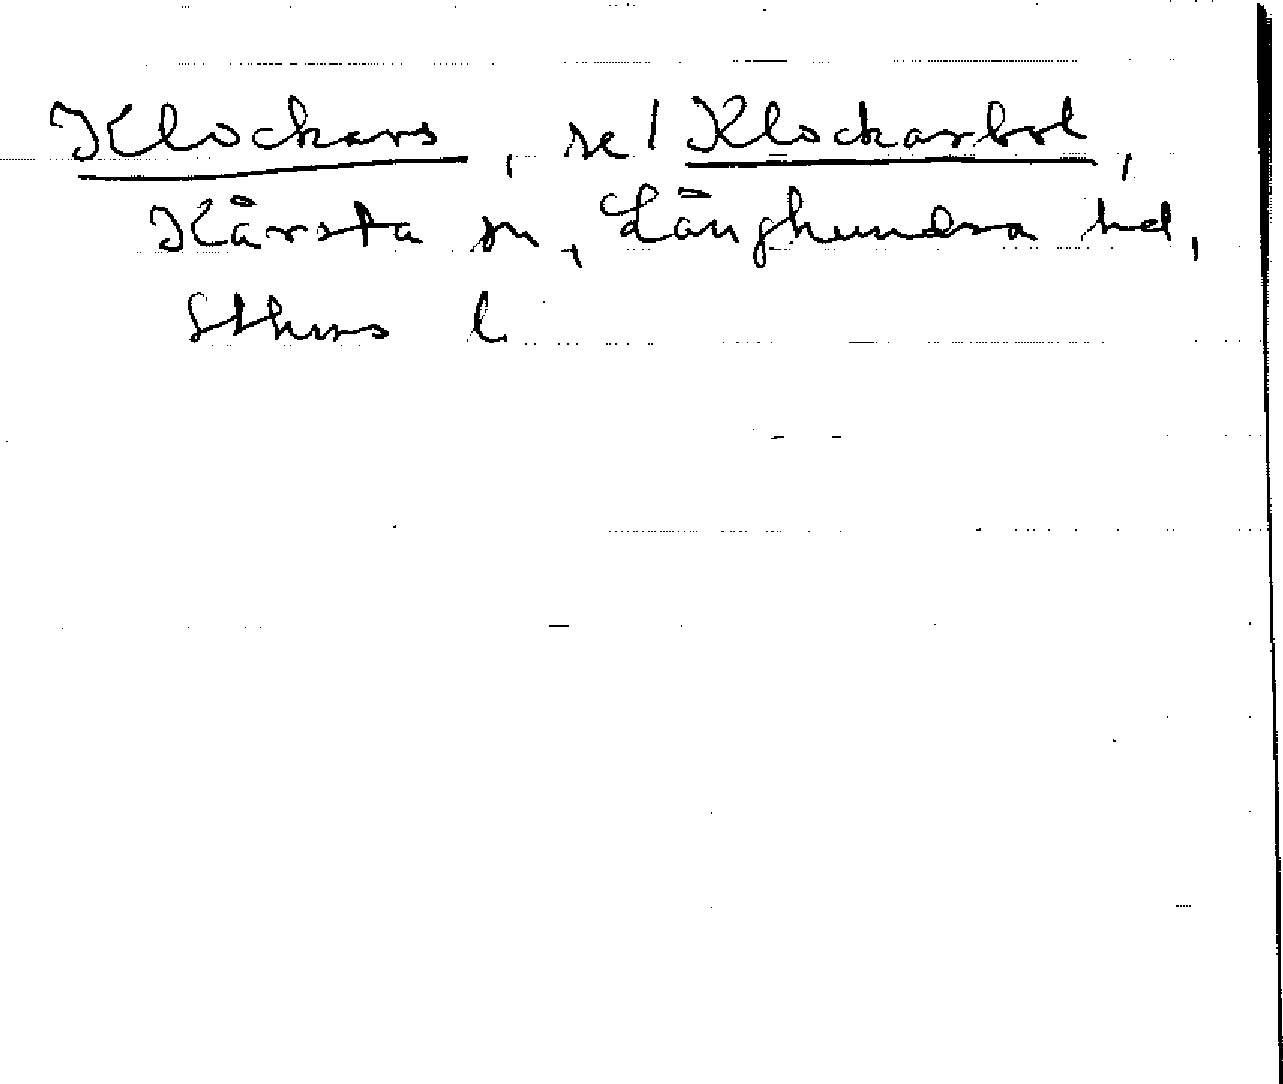 Klockars, se / Klockarbol,
Kårsta sn, Långhundra hd,
Sthms l